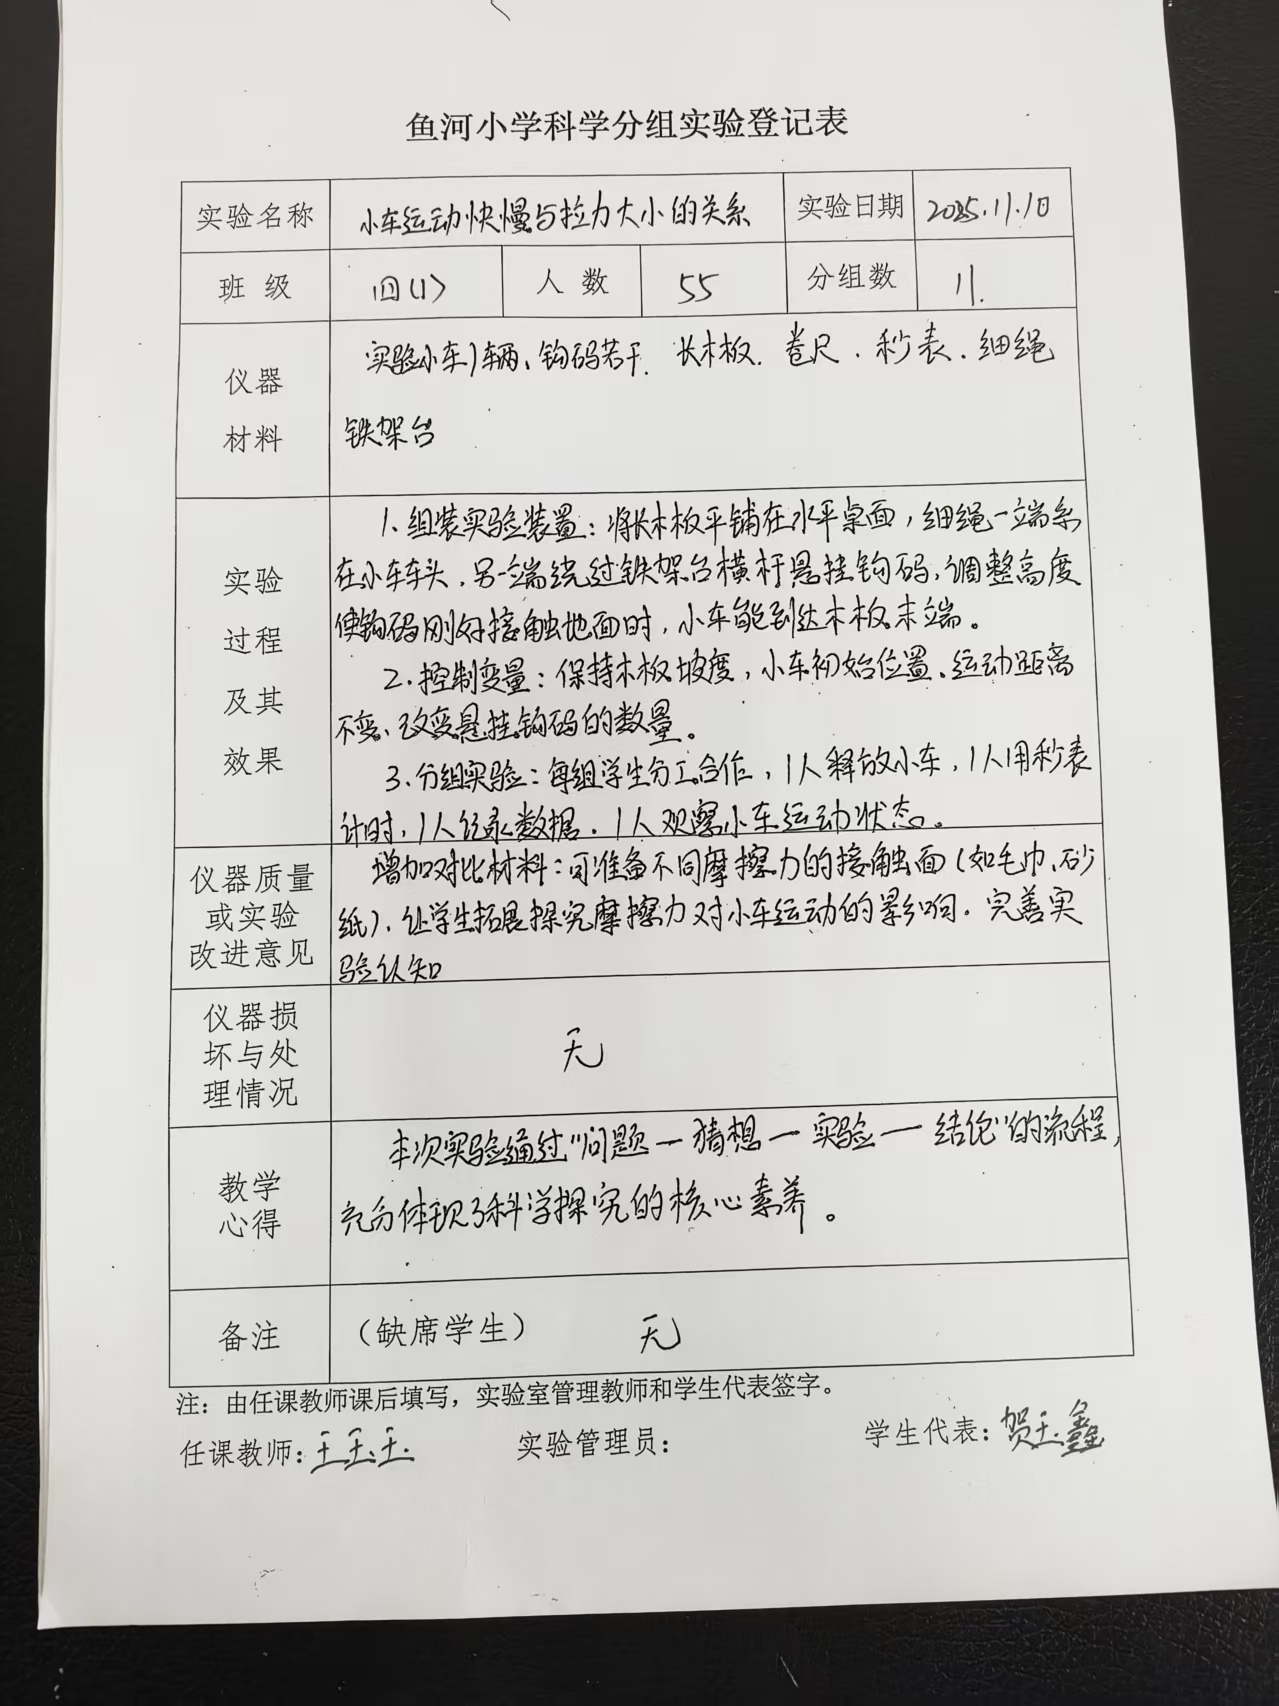 鱼河小学科学分组实验登记表
实验名称 小车运动快慢与拉力大小的关系 实验日期 2025.11.10
班 级 四(1) 人 数 55 分组数 11.
仪器
材料
实验小车1辆、钩码若干、长木板、卷尺、秒表、细绳
铁架台
实验
过程
及其
效果
1.组装实验装置：将长木板平铺在水平桌面，细绳一端系
在小车车头，另一端绕过铁架台横杆悬挂钩码，调整高度
使钩码刚好接触地面时，小车能到达木板末端。
2.控制变量：保持木板坡度，小车初始位置、运动距离
不变、改变悬挂钩码的数量。
3.分组实验：每组学生分工合作，1人释放小车，1人用秒表
计时，1人记录数据，1人观察小车运动状态。
仪器质量
或实验
改进意见
增加对比材料：可准备不同摩擦力的接触面（如毛巾、砂
纸）、让学生拓展探究摩擦力对小车运动的影响，完善实
验认知
仪器损
坏与处
理情况
无
教学
心得
本次实验通过“问题—猜想—实验—结论”的流程，
充分体现了科学探究的核心素养。
备注 （缺席学生） 无
注：由任课教师课后填写，实验室管理教师和学生代表签字。
任课教师：王玉玉 实验管理员： 学生代表：贺玉鑫